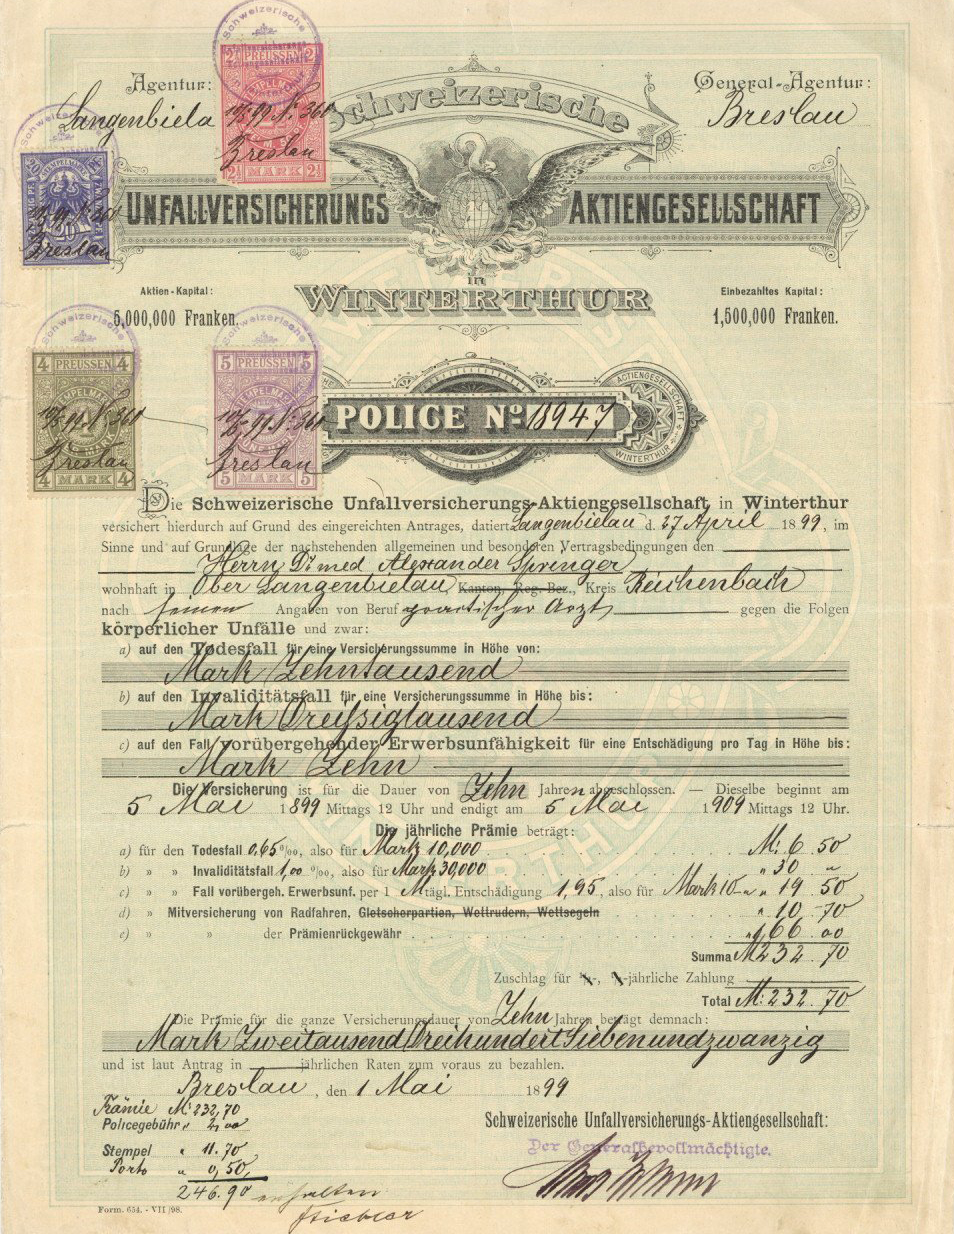 Agentur:
Langenbiela
General-Agentur:
Breslau
Schweizerische
UNFALLVERSICHERUNGS AKTIENGESELLSCHAFT
in
WINTERTHUR
Aktien-Kapital:
5,000,000 Franken.
Einbezahltes Kapital:
1,500,000 Franken.
Schweizerische
2½ PREUSSEN 2½
10/5 99 N: 360
Breslau
2½ MARK 2½
Schweizerische
20
10/5 99 N 360
Breslau
Schweizerische
4 PREUSSEN 4
10/5 99 N: 360
Breslau
4 MARK 4
Schweizerische
5 PREUSSEN 5
10/5 99 N: 360
Breslau
5 MARK 5
POLICE No. 18947
ACTIENGESELLSCHAFT
WINTERTHUR
Die Schweizerische Unfallversicherungs-Aktiengesellschaft in Winterthur
versichert hierdurch auf Grund des eingereichten Antrages, datiert Langenbielau d. 27 April 1899, im
Sinne und auf Grundlage der nachstehenden allgemeinen und besonderen Vertragsbedingungen den
Herrn Dr med Alexander Springer
wohnhaft in Ober Langenbielau, Kanton, Reg.-Bez., Kreis Reichenbach
nach seinen Angaben von Beruf practischer Arzt gegen die Folgen
körperlicher Unfälle und zwar:
a) auf den Todesfall für eine Versicherungssumme in Höhe von:
Mark Zehntausend
b) auf den Invaliditätsfall für eine Versicherungssumme in Höhe bis:
Mark Dreissigtausend
c) auf den Fall vorübergehender Erwerbsunfähigkeit für eine Entschädigung pro Tag in Höhe bis:
Mark Zehn
Die Versicherung ist für die Dauer von Zehn Jahren abgeschlossen. — Dieselbe beginnt am
5 Mai 1899 Mittags 12 Uhr und endigt am 5 Mai 1909 Mittags 12 Uhr.
Die jährliche Prämie beträgt:
a) für den Todesfall 0,65 ‰, also für Mark 10,000 M: 6 50
b) » » Invaliditätsfall 1,00 ‰, also für Mark 30,000 " 30 "
c) » » Fall vorübergeh. Erwerbsunf. per 1 M tägl. Entschädigung 1,95, also für Mark 10 " " 19 50
d) » Mitversicherung von Radfahren, Gletscherpartien, Wettrudern, Wettsegeln " 10 70
e) » » der Prämienrückgewähr " 166 00
Summa M 232 70
Zuschlag für ½-, ¼-jährliche Zahlung
Total M: 232 70
Die Prämie für die ganze Versicherungsdauer von Zehn Jahren beträgt demnach:
Mark Zweitausend Dreihundert Siebenundzwanzig
und ist laut Antrag in jährlichen Raten zum voraus zu bezahlen.
Breslau, den 1 Mai 1899
Prämie M 232,70
Policegebühr " 2,00
Stempel " 11.70
Porto " 0,50
246.90 erhalten
Schweizerische Unfallversicherungs-Aktiengesellschaft:
Der Generalbevollmächtigte.
Form. 654. - VII 98.